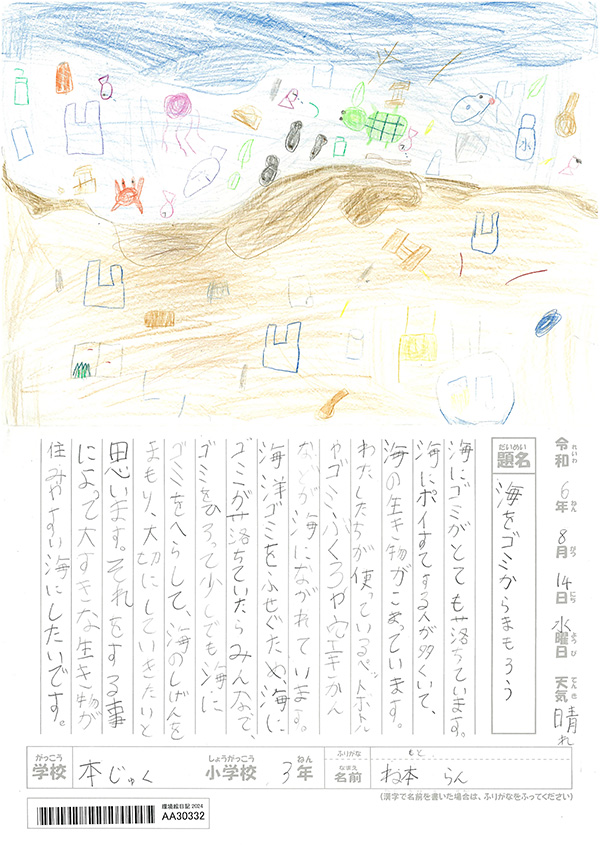 令和6年8月14日水曜日 天気晴れ
れいわ ねん がつ にち ようび てんき
だいめい
題名
海をゴミからまもろう
海にゴミがとても落ちています。
海にポイすてする人が多くいて、
海の生き物がこまっています。
わたしたちが使っているペットボトル
やゴミぶくろや空きかん
などが海にながれています。
海洋ゴミをふせぐため、海に
ゴミが落ちていたらみんなで、
ゴミをひろって少しでも海に
ゴミをへらして、海のしげんを
まもり、大切にしていきたいと
思います。それをする事
によって大すきな生き物が
住みやすい海にしたいです。
がっこう
学校 本じゅく
しょうがっこう
小学校
3年
ねん
ふりがな もと
なまえ
名前 ね本 らん
(漢字で名前を書いた場合は、ふりがなをふってください)
環境絵日記2024
AA30332
水